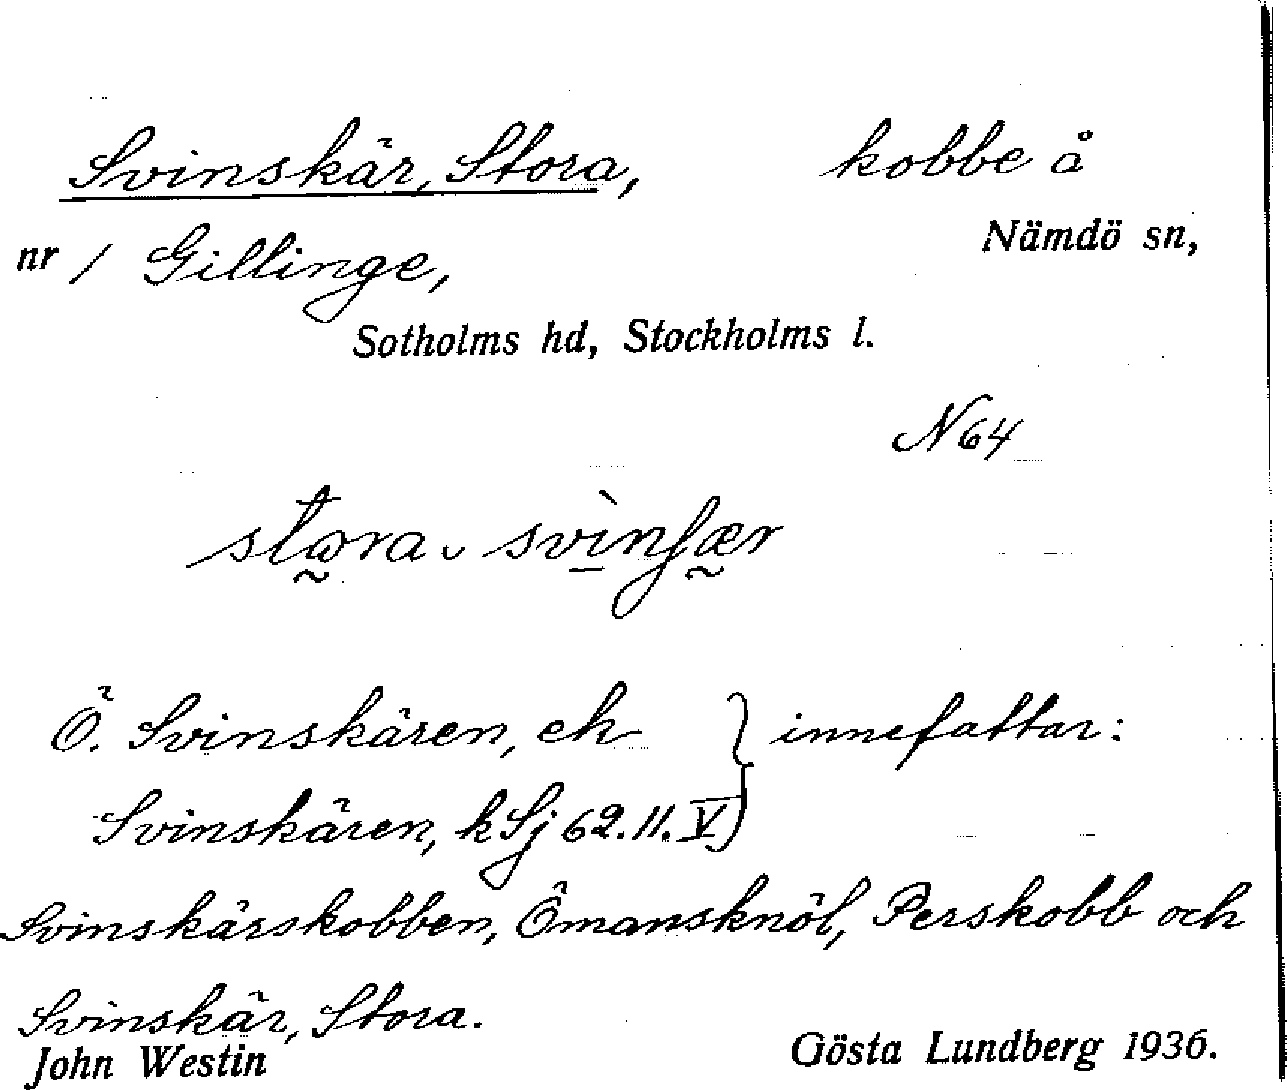 Svinskär, Stora, kobbe å
Nämdö sn,
nr 1 Gillinge,
Sotholms hd, Stockholms l.
N 64
Ö. Svinskären, ek } innefattar:
Svinskären, kSj 62.11.V
Svinskärskobben, Ömansknöl, Perskobb och
Svinskär, Stora.
John Westin Gösta Lundberg 1936.